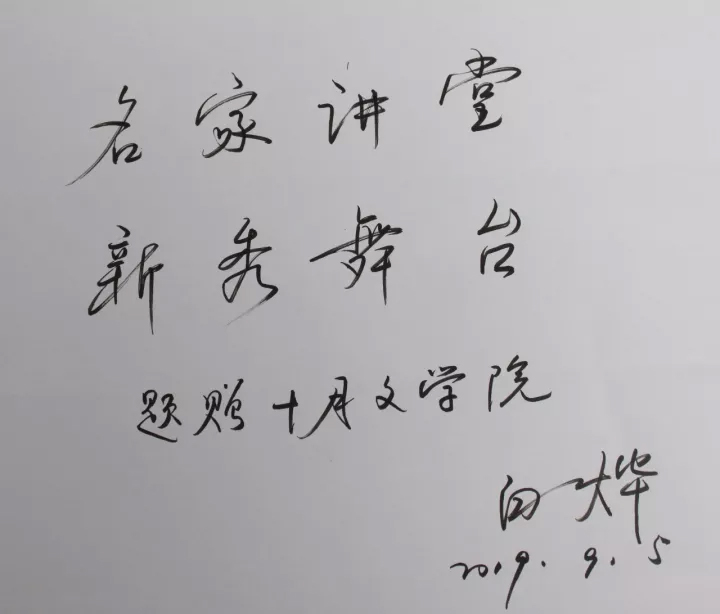 名家讲堂
新秀舞台
题赠十月文学院
白烨
2019.9.5